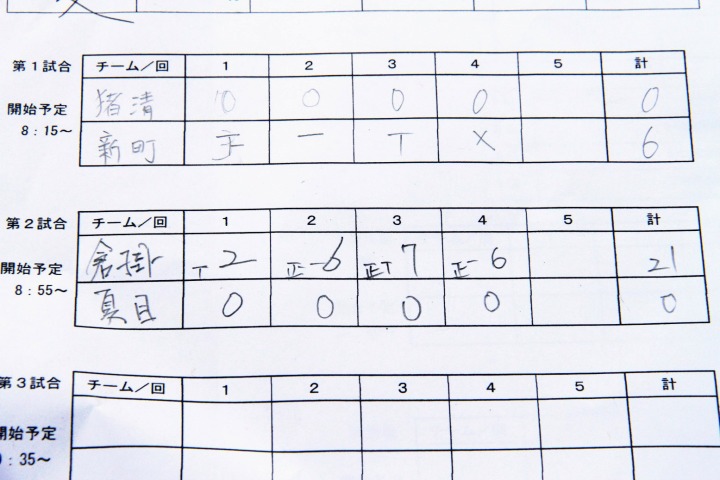 第1試合 チーム/回 1 2 3 4 5 計
猪清 0 0 0 0 0
開始予定
8:15~
新町 一 T X 6
第2試合 チーム/回 1 2 3 4 5 計
倉掛 T2 正一6 正T7 正一6 21
開始予定
8:55~
夏目 0 0 0 0 0
第3試合 チーム/回 1 2 3 4 5 計
開始予定
:35~